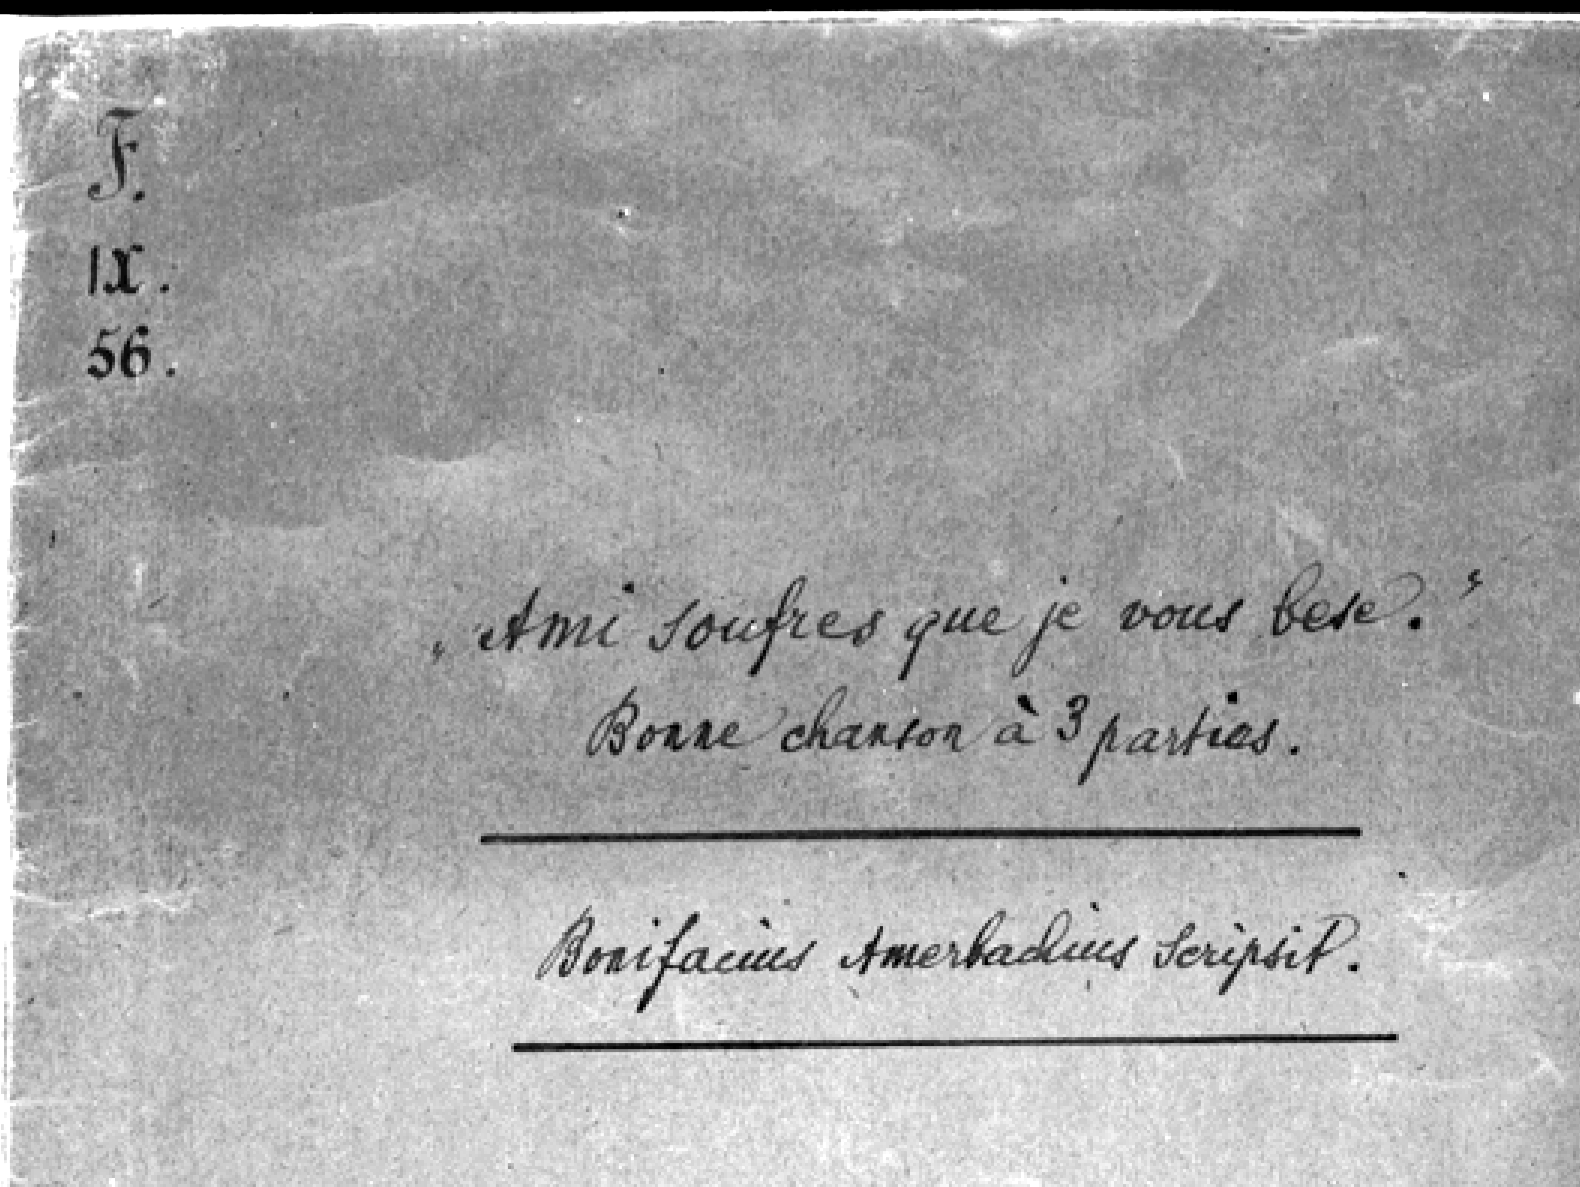 F.
IX.
56.
„Ami soufres que je vous bese.“
Bonne chanson à 3 parties.
Bonifacius Amerbachius scripsit.